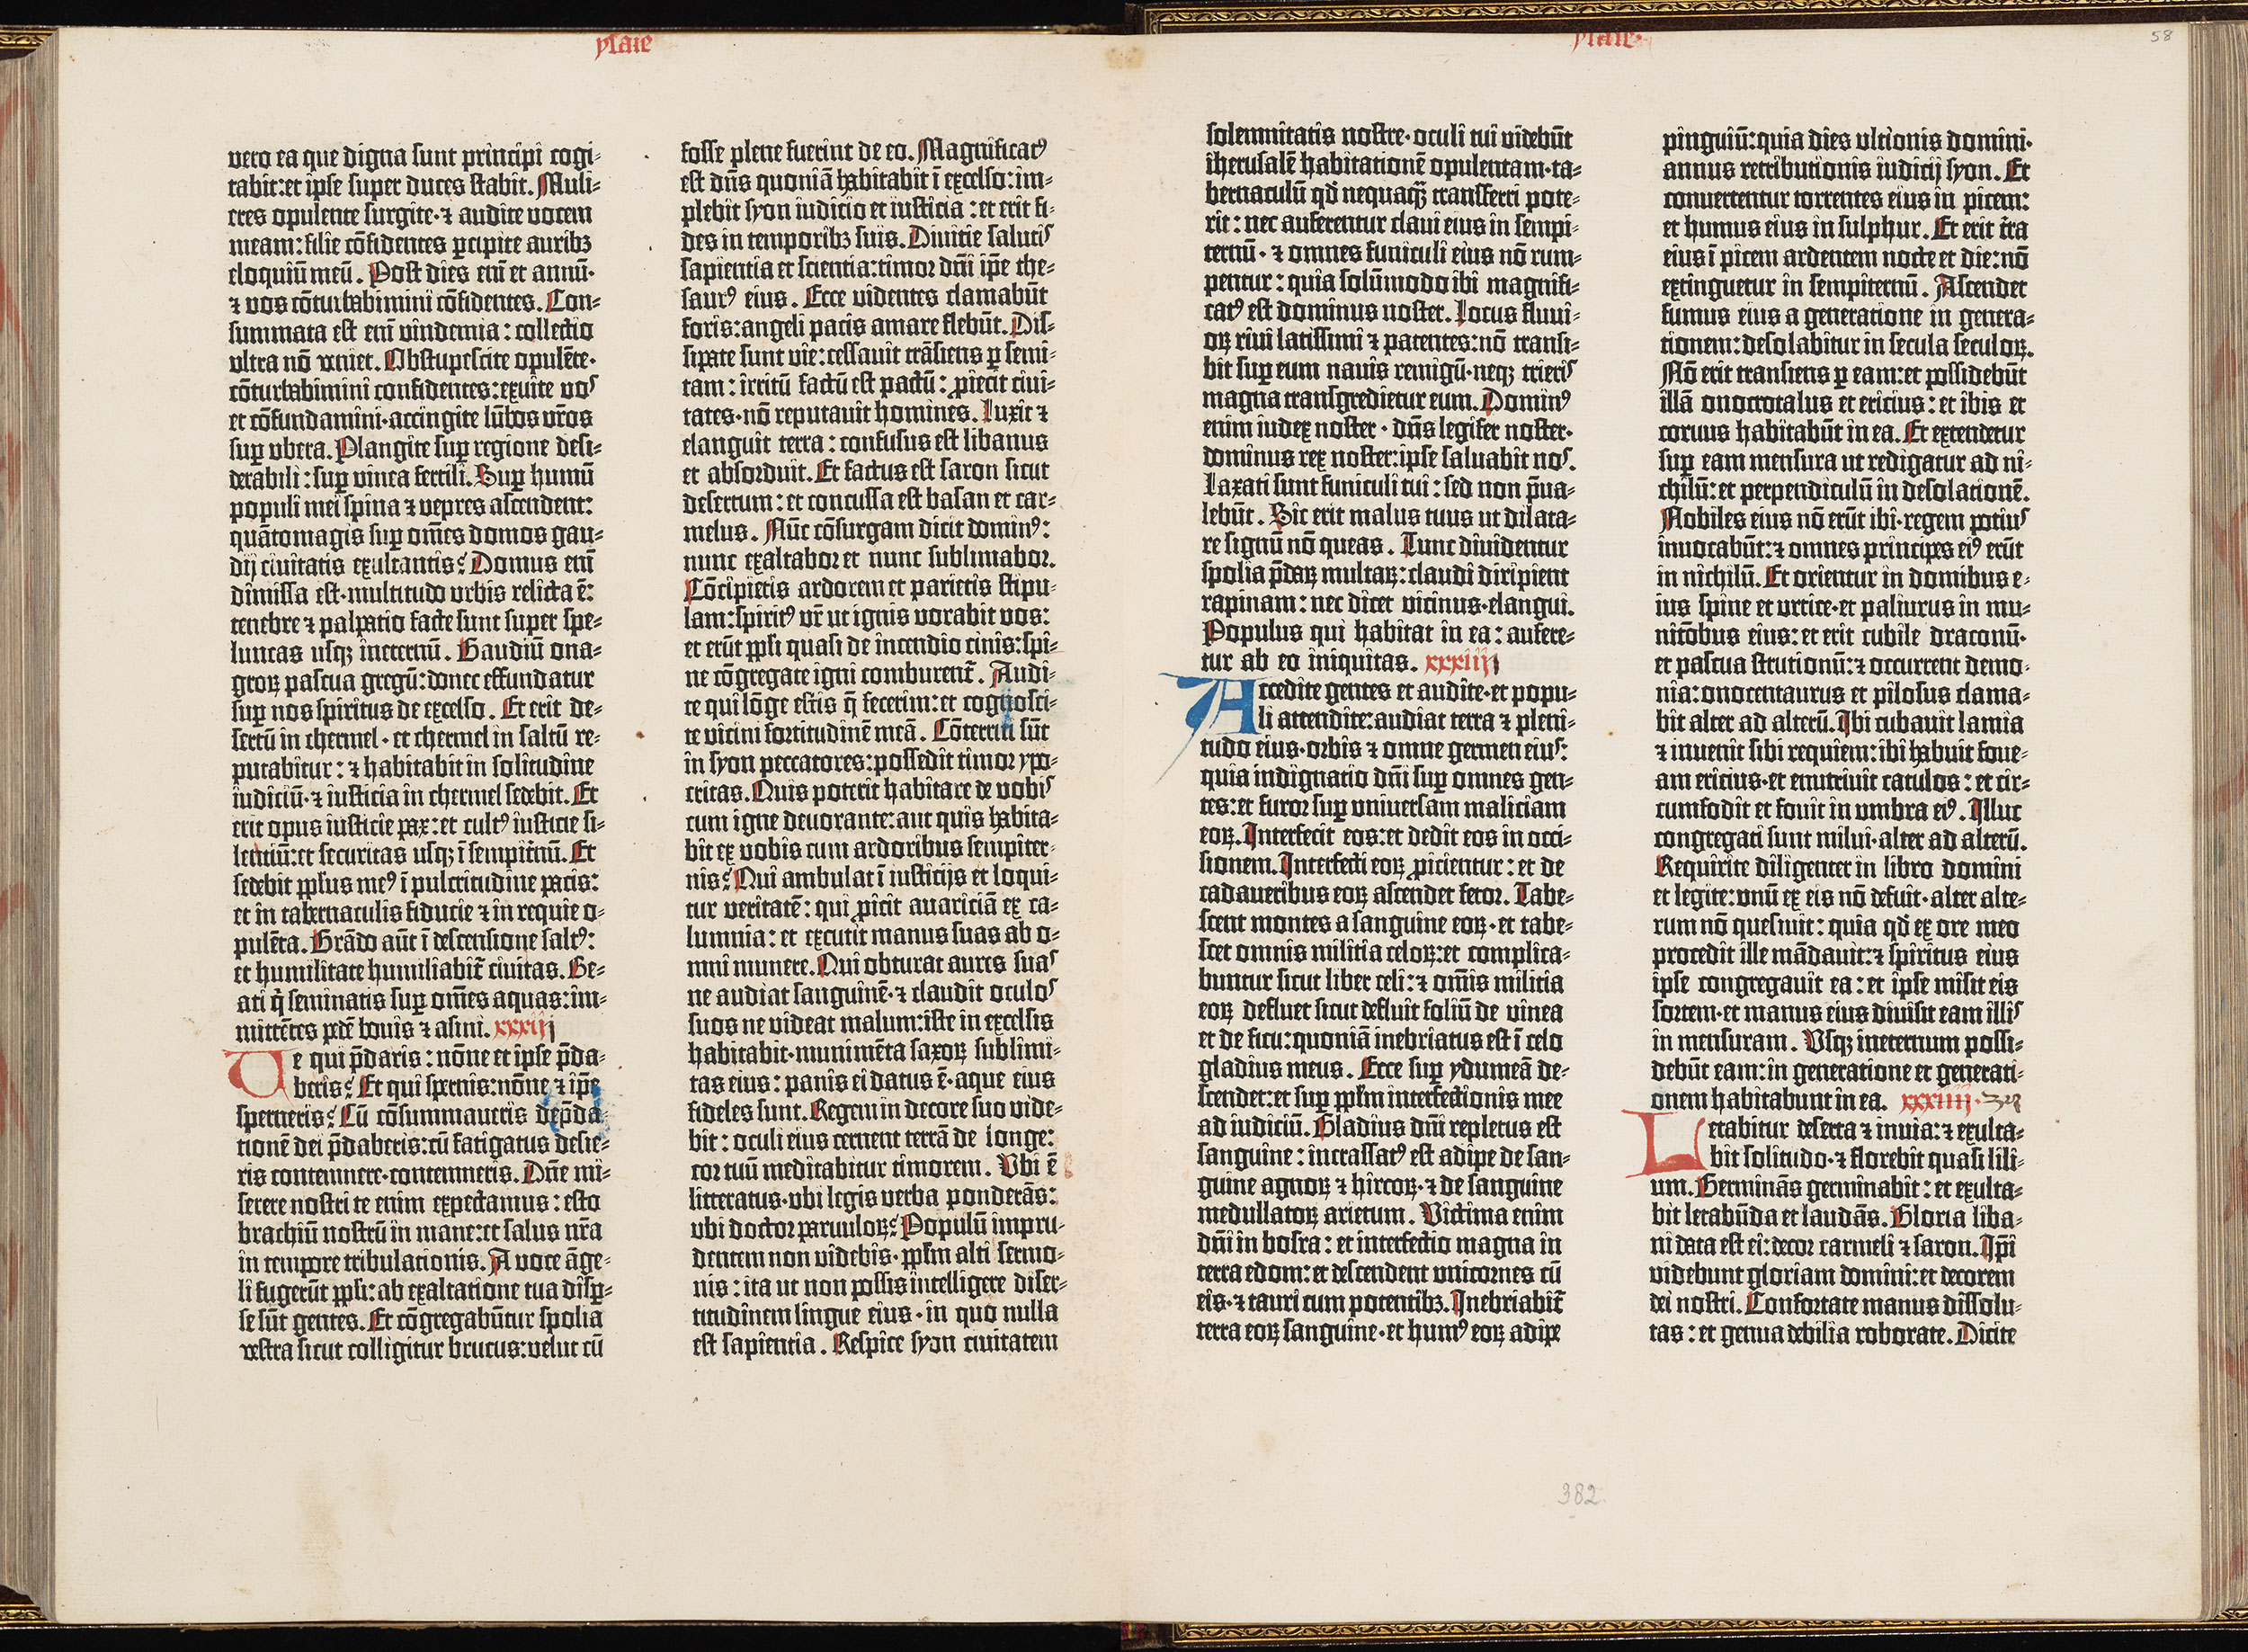 ysaie
vero ea que digna sunt principi cogi⸗
tabit:et ipse super duces stabit. Muli⸗
eres opulente surgite·⁊ audite vocem
meam:filie cōfidentes ꝑcipite auribꝫ
eloquiū meū. Post dies em̄ et annū·
⁊ vos cōturbabimini cōfidentes. Con⸗
summata est em̄ vindemia: collectio
ultra nō veniet. Obstupescite opulēte·
cōturbabimini confidentes:exuite vos
et cōfundamini·accingite lūbos vr̄os
suꝑ vbera. Plangite suꝑ regione desi⸗
derabili: suꝑ vinea fertili. Suꝑ humū
populi mei spina ⁊ vepres ascendent:
quātomagis suꝑ om̄es domos gau⸗
dij civitatis exultantis? Domus em̄
dimissa est·multitudo urbis relicta ē:
tenebre ⁊ palpatio facte sunt super spe⸗
luncas usqꝫ ineternū. Gaudiū ona⸗
groꝝ pascua gregū:donec effundatur
suꝑ nos spiritus de excelso. Et erit de⸗
sertū in chermel·et chermel in saltū re⸗
putabitur: ⁊ habitabit in solitudine
iudiciū·⁊ iusticia in chermel sedebit. Et
erit opus iusticie pax:et cultꝰ iusticie si⸗
lentiū:et securitas usqꝫ ī sempit̄nū. Et
sedebit pplus meꝰ ī pulcritudine pacis:
et in tabernaculis fiducie ⁊ in requie o⸗
pulēta. Grādo aūt ī descensione saltꝰ:
et humilitate humiliabit̄ civitas. Be⸗
ati q̄ seminatis suꝑ om̄es aquas:im⸗
mittētes pedē bovis ⁊ asini. xxxiij
Ve qui p̄daris: nōne et ipse p̄da⸗
beris? Et qui spernis:nōne ⁊ ip̄e
sperneris? Cū cōsummaveris dep̄da⸗
tionē dei p̄daberis:cū fatigatus desie⸗
ris contemnere·contemneris. Dn̄e mi⸗
serere nostri te enim expectamus: esto
brachiū nostrū in mane:et salus nr̄a
in tempore tribulacionis. A voce āge⸗
li fugerūt ppl̄i: ab exaltatione tua disꝑ⸗
se sūt gentes. Et cōgregabūtur spolia
vestra sicut colligitur brucus:velut cū
fosse plene fuerint de eo. Magnificatꝰ
est dn̄s quoniā habitabit ī excelso:im⸗
plebit syon iudicio et iusticia: et erit fi⸗
des in temporibꝫ suis. Divitie salutis
sapientia et scientia:timor dn̄i ip̄e the⸗
saurꝰ eius. Ecce videntes clamabūt
foris:angeli pacis amare flebūt. Dis⸗
sipate sunt vie:cessavit trāsiens ꝑ semi⸗
tam: irritū factū est pactū: ꝓiecit civi⸗
tates·nō reputavit homines. Luxit ⁊
elanguit terra: confusus est libanus
et absorduit. Et factus est saron sicut
desertum: et concussa est basan et car⸗
melus. Nūc cōsurgam dicit dominꝰ:
nunc exaltabor et nunc sublimabor.
Cōcipietis ardorem et parietis stipu⸗
lam:spiritꝰ vr̄ ut ignis vorabit vos:
et erūt ppl̄i quasi de incendio cinis:spi⸗
ne cōgregate igni comburent̄. Audi⸗
te qui lōge estis q̄ fecerim:et cognosci⸗
te vicini fortitudinē meā. Cōterriti sūt
in syon peccatores:possedit timor ypo⸗
critas. Quis poterit habitare de vobis
cum igne devorante:aut quis habita⸗
bit ex vobis cum ardoribus sempiter⸗
nis? Qui ambulat ī iusticijs et loqui⸗
tur veritatē: qui ꝓicit avariciā ex ca⸗
lumnia: et excutit manus suas ab o⸗
mni munere. Qui obturat aures suas
ne audiat sanguinē·⁊ claudit oculos
suos ne videat malum:iste in excelsis
habitabit·munimēta saxoꝝ sublimi⸗
tas eius: panis ei datus ē·aque eius
fideles sunt. Regem in decore suo vide⸗
bit: oculi eius cernent terrā de longe:
cor tuū meditabitur timorem. Ubi ē
litteratus·ubi legis verba ponderās:
ubi doctor parvuloꝝ? Populū impru⸗
dentem non videbis·pplm̄ alti sermo⸗
nis: ita ut non possis intelligere diser⸗
titudinem lingue eius·in quo nulla
est sapientia. Respice syon civitatem
ysaie·
58
solemnitatis nostre·oculi tui videbūt
iherusalē habitationē opulentam·ta⸗
bernaculū qd̄ nequaqꝫ transferri pote⸗
rit: nec auferentur clavi eius in sempi⸗
ternū·⁊ omnes funiculi eius nō rum⸗
pentur: quia solūmodo ibi magnifi⸗
catꝰ est dominus noster. Locus fluvi⸗
oꝝ rivi latissimi ⁊ patentes:nō transi⸗
bit suꝑ eum navis remigū·neqꝫ trieris
magna transgredietur eum. Dominꝰ
enim iudex noster·dn̄s legifer noster·
dominus rex noster:ipse salvabit nos.
Laxati sunt funiculi tui: sed non p̄va⸗
lebūt. Sic erit malus tuus ut dilata⸗
re signū nō queas. Tunc dividentur
spolia p̄daꝝ multaꝝ:claudi diripient
rapinam: nec dicet vicinus·elangui.
Populus qui habitat in ea: aufere⸗
tur ab eo iniquitas. xxxiiij
Accedite gentes et audite·et popu⸗
li attendite:audiat terra ⁊ pleni⸗
tudo eius·orbis ⁊ omne germen eius:
quia indignatio dn̄i suꝑ omnes gen⸗
tes:et furor suꝑ universam maliciam
eoꝝ. Interfecit eos:et dedit eos in occi⸗
sionem. Interfecti eoꝝ ꝓicientur: et de
cadaveribus eoꝝ ascendet fetor. Tabe⸗
scent montes a sanguine eoꝝ·et tabe⸗
scet omnis militia celoꝝ:et complica⸗
buntur sicut liber celi:⁊ om̄is militia
eoꝝ defluet sicut defluit foliū de vinea
et de ficu:quoniā inebriatus est ī celo
gladius meus. Ecce suꝑ ydumeā de⸗
scendet:et suꝑ pplm̄ interfectionis mee
ad iudiciū. Gladius dn̄i repletus est
sanguine: incrassatꝰ est adipe de san⸗
guine agnoꝝ ⁊ hircoꝝ·⁊ de sanguine
medullatoꝝ arietum. Victima enim
dn̄i in bosra: et interfectio magna in
terra edom:et descendent unicornes cū
eis·⁊ tauri cum potentibꝫ. Inebriabit̄
terra eoꝝ sanguine·et humꝰ eoꝝ adipe
pinguiū:quia dies ultionis domini·
annus retributionis iudicij syon. Et
convertentur torrentes eius in picem:
et humus eius in sulphur. Et erit t̄ra
eius ī picem ardentem nocte et die:nō
extinguetur in sempiternū. Ascendet
fumus eius a generatione in genera⸗
tionem:desolabitur in secula seculoꝝ.
Nō erit transiens ꝑ eam:et possidebūt
illā onocrotalus et ericius: et ibis et
corvus habitabūt in ea. Et extendetur
suꝑ eam mensura ut redigatur ad ni⸗
chilū:et perpendiculū in desolationē.
Nobiles eius nō erūt ibi·regem potius
invocabūt:⁊ omnes principes eiꝰ erūt
in nichilū. Et orientur in domibus e⸗
ius spine et urtice·et paliurus in mu⸗
nitōibus eius: et erit cubile draconū·
et pascua strutionū:⁊ occurrent demo⸗
nia:onocentaurus et pilosus clama⸗
bit alter ad alterū. Ibi cubavit lamia
⁊ invenit sibi requiem:ibi habuit fove⸗
am ericius·et enutrivit catulos: et cir⸗
cumfodit et fovit in umbra eiꝰ. Illuc
congregati sunt milvi·alter ad alterū.
Requirite diligenter in libro domini
et legite:unū ex eis nō defuit·alter alte⸗
rum nō quesivit: quia qd̄ ex ore meo
procedit ille mādavit:⁊ spiritus eius
ipse congregavit ea: et ipse misit eis
sortem·et manus eius divisit eam illis
in mensuram. Usqꝫ ineternum possi⸗
debūt eam:in generatione et generati⸗
onem habitabunt in ea. xxxiiiij·
Letabitur deserta ⁊ invia:⁊ exulta⸗
bit solitudo·⁊ florebit quasi lili⸗
um. Germinās germinabit: et exulta⸗
bit letabūda et laudās. Gloria liba⸗
ni data est ei:decor carmeli ⁊ saron. Ip̄i
videbunt gloriam domini:et decorem
dei nostri. Confortate manus dissolu⸗
tas: et genua debilia roborate. Dicite
382